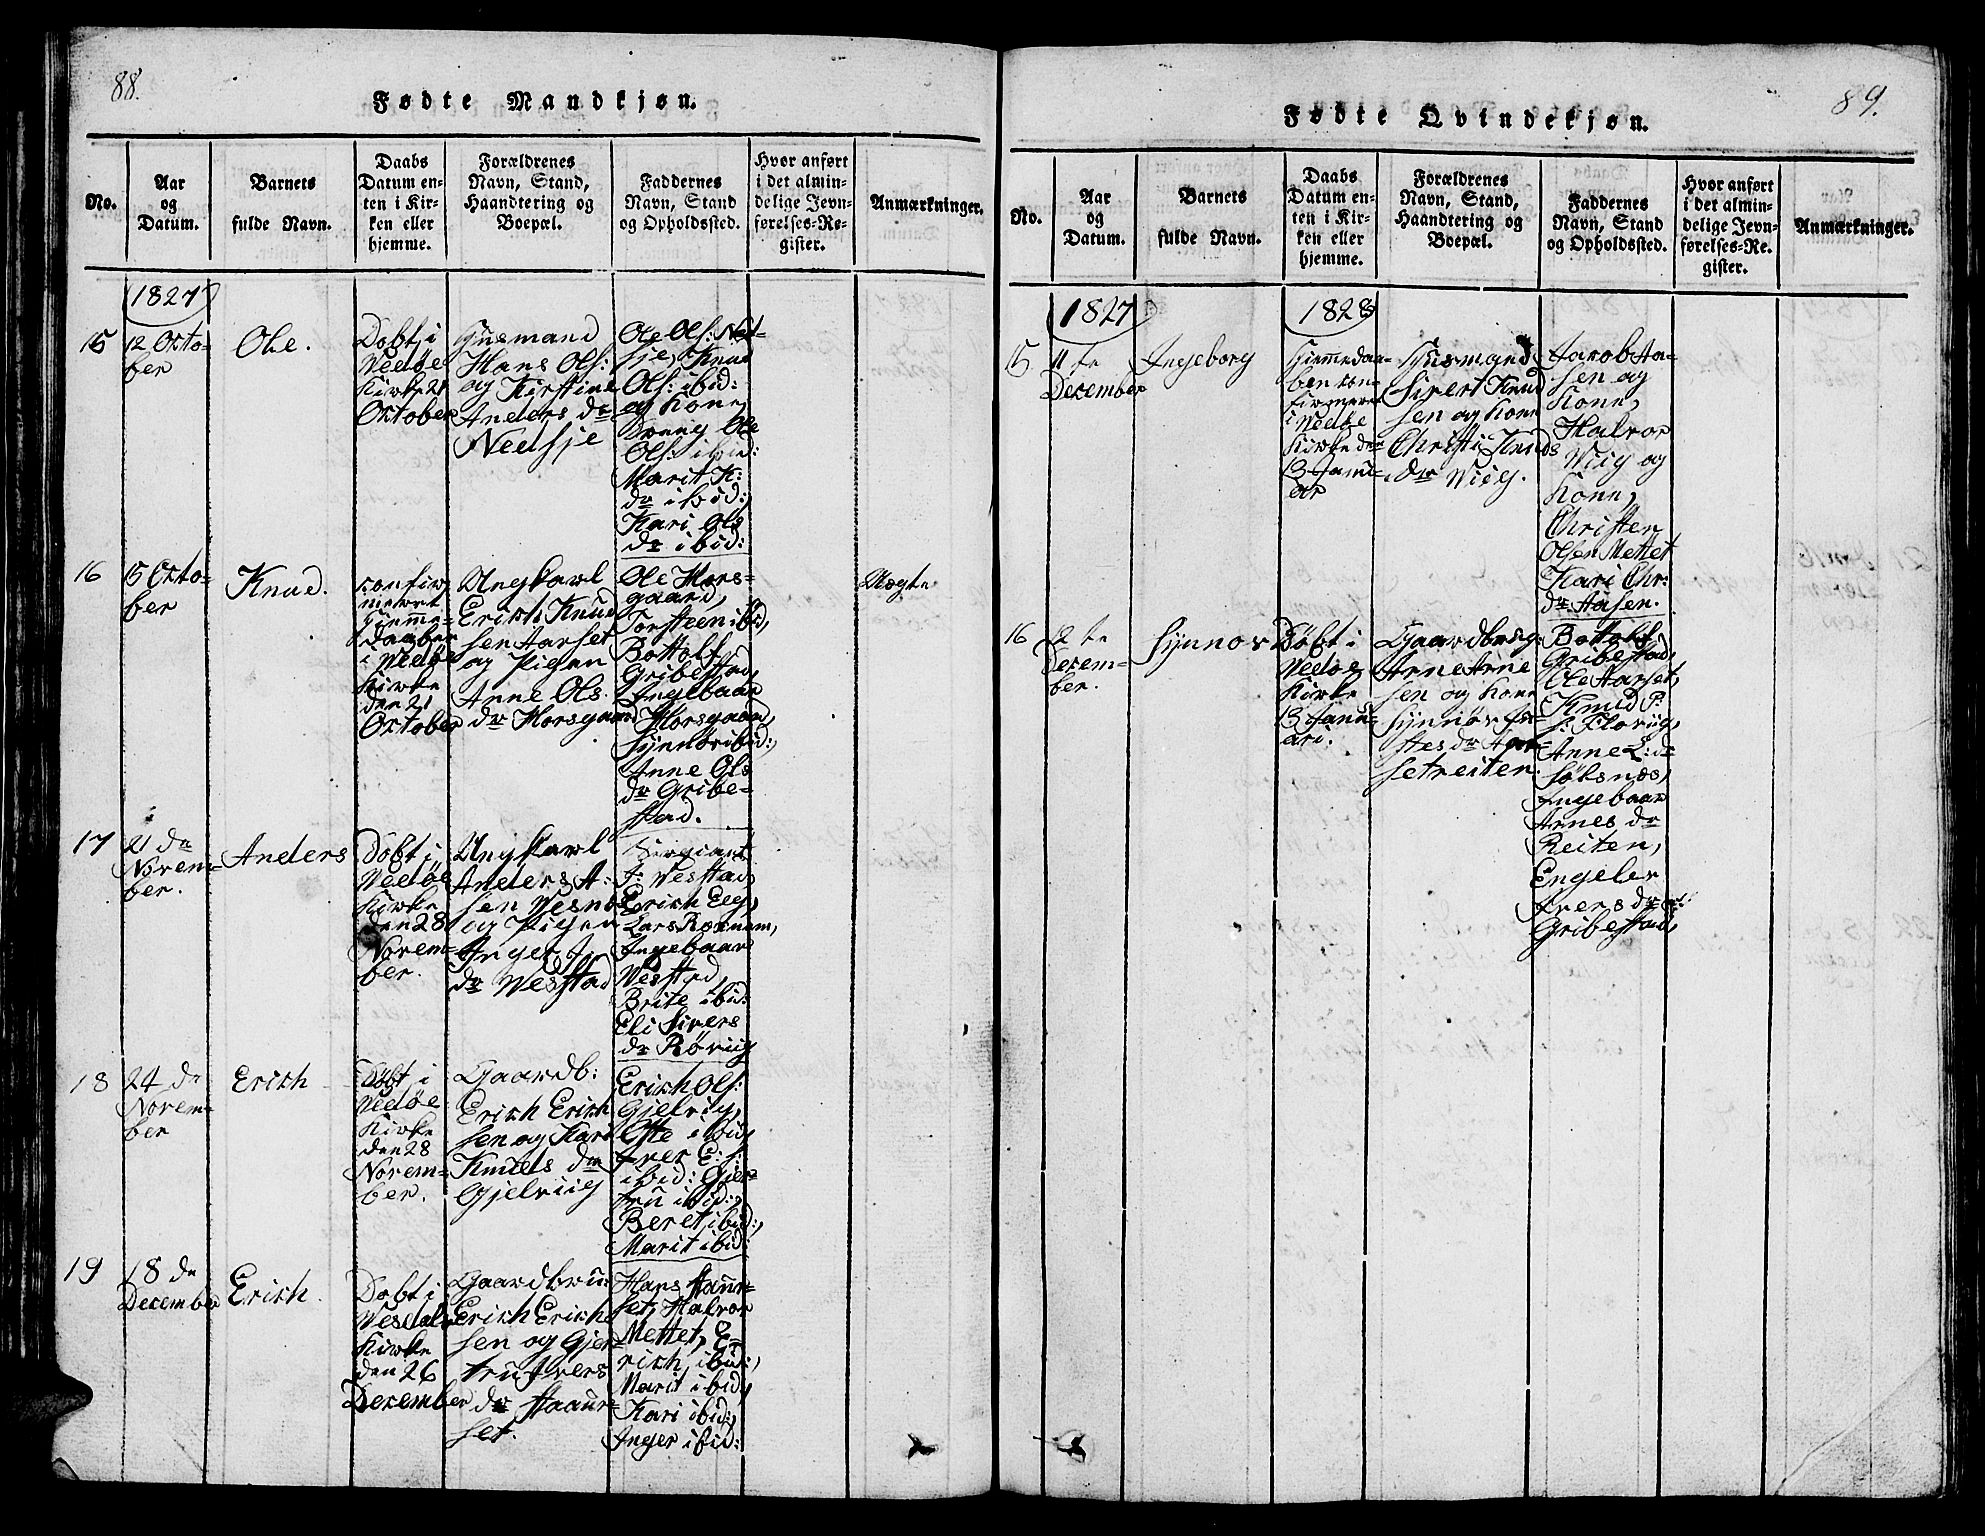 88.
Fødte Mandkjøn.
No.
Aar
og
Datum.
Barnets
fulde Navn.
Daabs
Datum en-
ten i Kir-
ken eller
hjemme.
Forældrenes
Navn, Stand,
Haandtering og
Boepæl.
Faddernes
Navn, Stand
og Opholdssted.
Hvor anført
i det almin-
delige Jevn-
førelses-Re-
gister.
Anmærkninger.
1827
15
12 Octo-
ber
Ole.
Døbt i
Vedøe
Kirke 21
October
Huusmand
Hans Ols:
og Kirstine
Anders dr
Nedsje
Ole Ols: Ned-
sje, Knud
Ols: ibid:
og Kone,
Dreng Ole
Ols: ibid:
Marit K:
dr ibid:,
Kari Ols
dr ibid:
16
15 Octo-
ber
Knud.
confir
meret
Hjemme-
daaben
i Vedøe
Kirke
den 21
October
Ungkarl
Erich Knud
sen Aarset
og Pigen
Anne Ols.
dr Horsgaard
Ole Hors-
gaard,
Torsteen ibid,
Bottolf
Gribestad,
Engebaar
Horsgaard,
Synnør ibid:,
Anne Ols
dr Gribe-
stad.
Uægte
17
21 de
Novem-
ber.
Anders
Døbt i
Vedøe
Kirke
den 28
Novem-
ber.
Ungkarl
Anders A:
sen Vesnæs
og Pigen
Inger J:
dr Vestad
Sergiant
J: Vestad,
Erich Eeg,
Lars
Ingebaar
Vestad,
Brite ibid:
Eli Sivers
dr Rørviig
18
24 de
Novem-
ber
Erich
Døbt i
Vedøe
Kirke
den 28
Novem-
ber.
Gaardb:
Erich Erich
sen og Kari
Knuds dr
Gjelviig
Erich Ols:
Gjelviig,
Offe ibid,
Iver E: s:
ibid: Gjer-
tru ibid:,
Beret ibid:,
Marit ibid:
19
18 de
December
Erich.
Døbt i
Kirke
den 26
December
Gaardbru:
Erich Erich
sen og Gjer-
tru Ivers
dr Haaner-
set.
Hans Haaner-
set, Halvor
Mettet, E-
rich ibid:,
Marit ibid,
Kari ibid:,
Inger ibid:
89.
Fødte Qvindekjøn.
No.
Aar
og
Datum.
Barnets
fulde Navn.
Daabs
Datum en-
ten i Kir-
ken eller
hjemme.
Forældrenes
Navn, Stand,
Haandtering og
Boepæl.
Faddernes
Navn, Stand
og Opholdssted.
Hvor anført
i det almin-
delige Jevn-
førelses-Re-
gister.
Anmærkninger.
1827
1828
15
11 te
December
Ingeborg
Hjemmedaa-
ben con-
firmeret
i Vedøe
Kirke den
13 Janu-
ar
Huusmand
Sivert Knud
sen og Kone
Christi Knuds
dr Viig.
Jacob Aa-
sen og
Kone,
Halvor
Viig og
Kone,
Christen
Olsen Mettet
Kari Chr:
dr Aasen.
16
12 te
Decem-
ber.
Synnov
Døbt i
Vedøe
Kirke
13 Janu-
ari.
Gaardbrug
Arne Arne
sen og Kone
Synnøv
stes dr Aar
setreiten
Bottolf
Gribestad,
Ole Aarset,
Knud P:
s: Floviig,
Anne L: dr
Sølsnæs,
Ingebaar
Arnes dr
Reiten,
Engeler
Ivers dr
Gribestad,